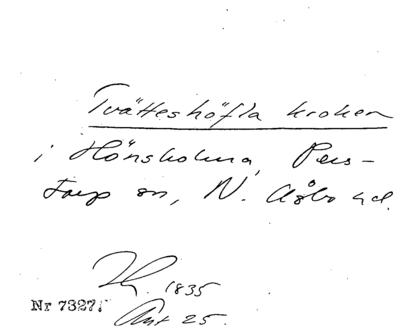 Tvätteshöfla kroken
i Hönsholma, Pers-
torp sn, N. Åsbo hd.
1835
Nr 7327.
Akt 25.